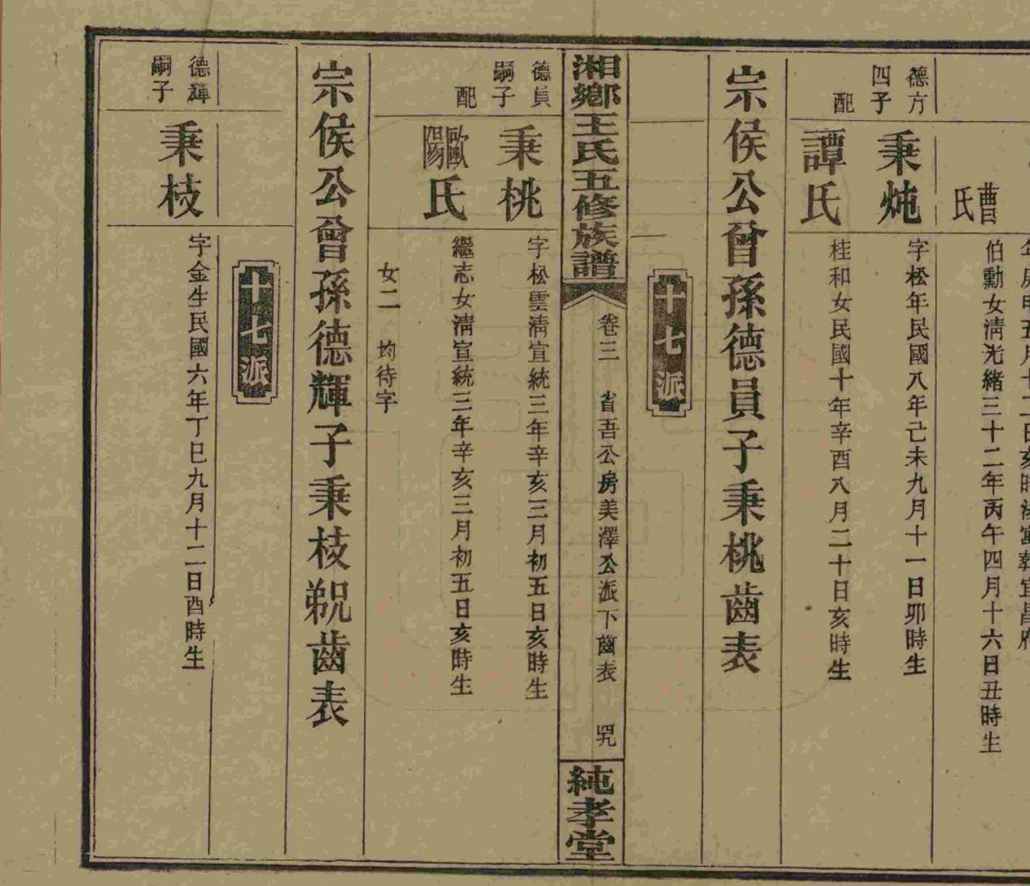 曹氏
伯勳女清光緒三十二年丙午四月十六日丑時生
德方四子
秉炖
字松年民國八年己未九月十一日卯時生
配
譚氏
桂和女民國十年辛酉八月二十日亥時生
宗侯公曾孫德員子秉桃齒表
十七派
湘鄉王氏五修族譜
卷三 省吾公房美澤公派下齒表
純孝堂
德員嗣子
秉桃
字松雲清宣統三年辛亥三月初五日亥時生
配
歐陽氏
繼志女清宣統三年辛亥三月初五日亥時生
女二 均待字
宗侯公曾孫德輝子秉枝䚷齒表
十七派
德輝嗣子
秉枝
字金生民國六年丁巳九月十二日酉時生